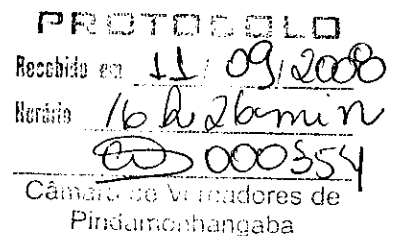 PROTOCOLO
Recebido em 11/09/2008
Horário 16 h 26 min
000354
Câmara de Vereadores de
Pindamonhangaba